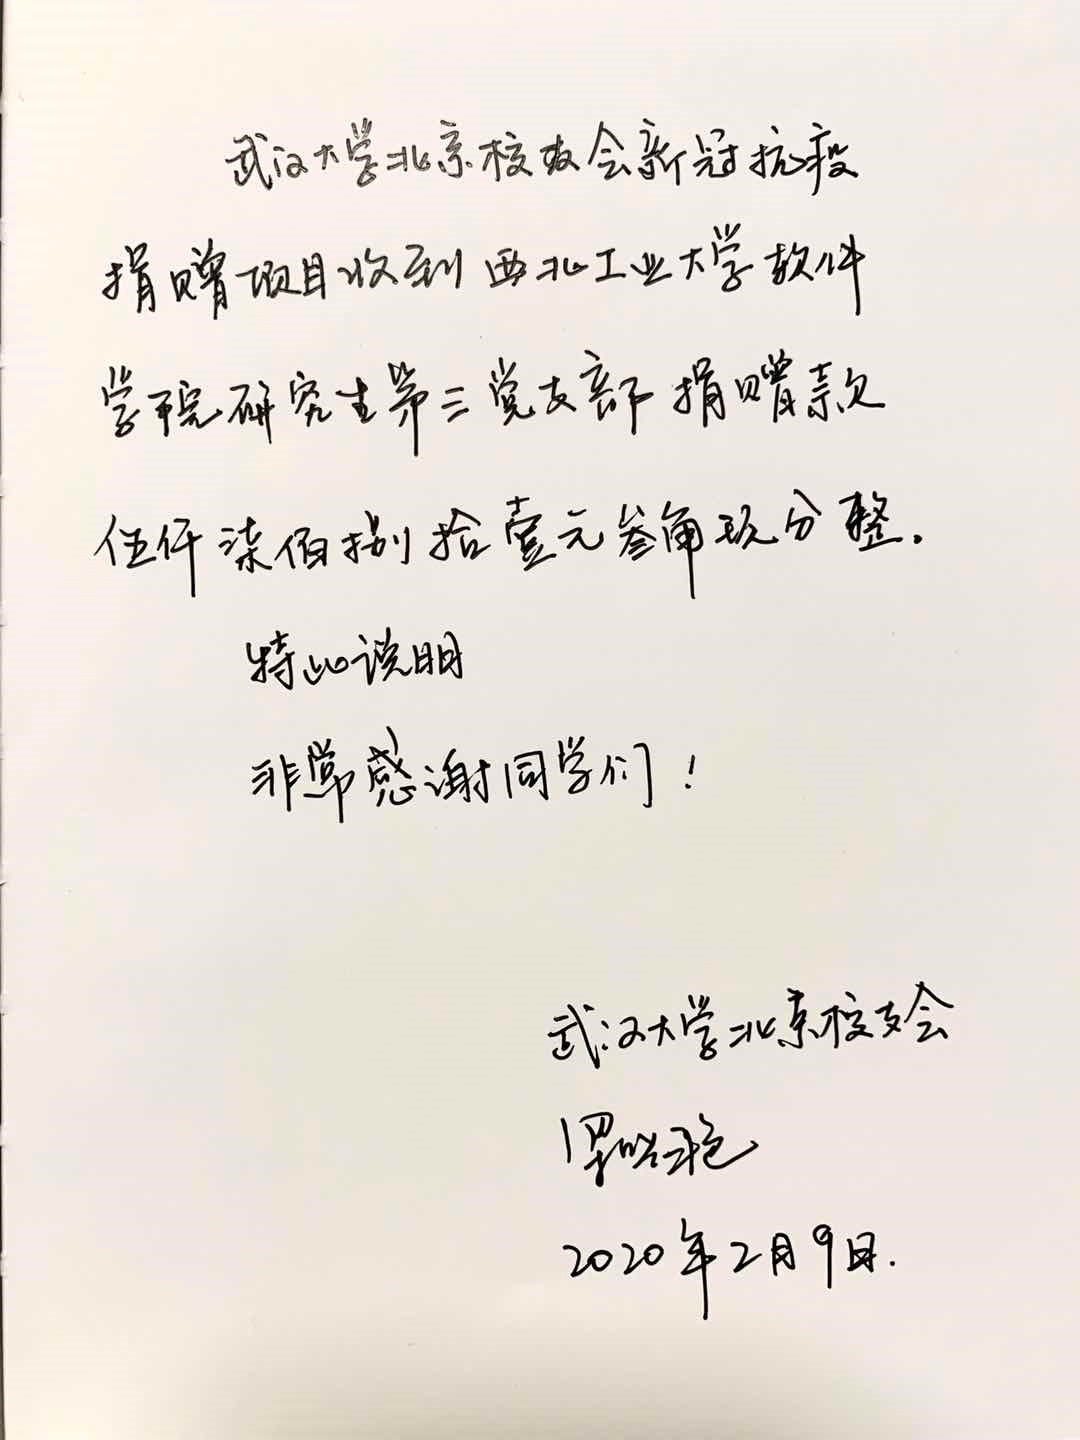 武汉大学北京校友会新冠抗疫
捐赠项目收到西北工业大学软件
学院研究生第三党支部捐赠款
伍仟柒佰捌拾壹元叁角玖分整.
特此说明
非常感谢同学们!
武汉大学北京校友会
2020年2月9日.